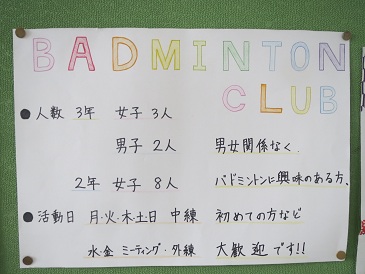 BADMINTON
CLUB
●人数 3年 女子 3人
男子 2人 男女関係なく
2年 女子 8人 バドミントンに興味のある方、
●活動日 月・火・木土日 中練 初めての方など
水・金 ミーティング・外練 大歓迎です!!